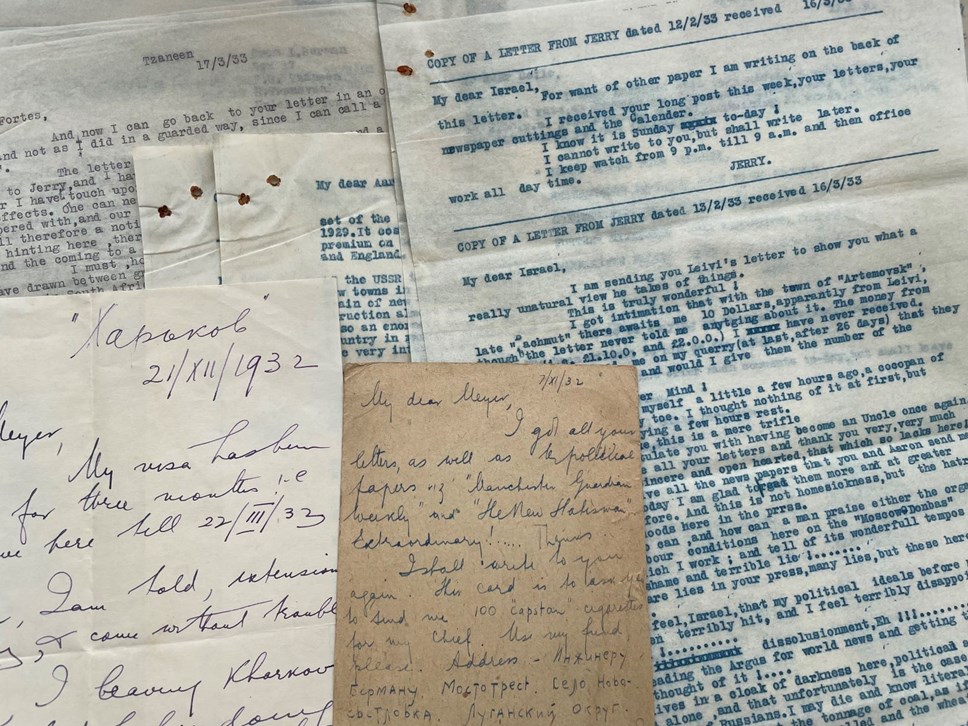 Tzaneen 17/3/33
Fortes,
And now I can go back to your letter in an o
and not as I did in a guarded way, since I can call a
The letter
to Jerry, and I ha
r I have touch upo
ffects. One can ne
pered with, and our
ll therefore a noti
hinting here , ther
nd the coming to a
I must ,ho
ave drawn between g
My dear Aar
set of the
1929. It cos
premium on
and England.
the USSR
w towns i
ain of new
ruction al
o an eno
ountry in
e very int
COPY OF A LETTER FROM JERRY dated 12/2/33 received 16/3/33
My dear Israel,
For want of other paper I am writing on the back of
this letter. I received your long post this week,your letters,your
newspaper cuttings and the Calender.
I know it is Sunday to-day !
I cannot write to you,but shall write later.
I keep watch from 9 p.m. till 9 a.m. and then office
work all day time.
JERRY.
COPY OF A LETTER FROM JERRY dated 13/2/33 received 16/3/33
My dear Israel,
I am sending you Leivi's letter to show you what a
really unnatural view he takes of things.
This is truly wonderful !
I got intimation that with the town of "Artemovsk" ,
late "Bachmut" there awaits me 10 Dollars,apparantly from Leivi,
though the letter never told me anytging about it. The money from
21.10.0, and £2.0.0.) I have never received.
me on my querry(at last,after 26 days) that they
and would I give them the number of the
er Mind !
myself a little a few hours ago,a cocopan of
toe. I thought nothing of it at first,but
ying a few hours rest.
e this is a mere trifle
ulate you with having become an Uncle once again.
all your letters and thank you very,very much
incere and open hearted,that which so lacks here!
ve all the news papers that you and Aaron send me
day I am glad to read them more and at greater
fore. And this is not homesickness,but the hatr
oods here in the press.
can ,and how can a man praise either the orga
bour conditions here on the "Moscow-Donbas"
ich I work ; and tell of its wonderfull tempos
shame and terrible lie !.......
re lies in your press,many lies,but these here
feel,Israel,that my political ideals before
en terribly hit, and I feel terribly disappoi
dissolusionment,Eh !!!
ading the Argus for world news and getting t
thought of it !....
ives in a cloak of darkness here,political a
alone and that unfortunately is the case
Russians. I may die and know literal
the tonnage of coal,as if
and the who
"Харьков"
21/XII/1932
Meyer,
My visa has been
for three months i.e
ve here till 22/III/33
I am told, extension
come without troubl
I leaving Kharkov
7/XI/32
My dear Meyer,
I got all your
letters, as well as the political
papers viz "Manchester Guardian
Weekly" and "The New Statesman"
Extraordinary!.... Thanks
I shall write to you
again. This card is to ask you
to send me 100 "Capstan" cigarettes
for my Chief. Use my fund
please. Address - Инжинеру
Герману. Мостотрест. Село Ново-
Луганский Округ.